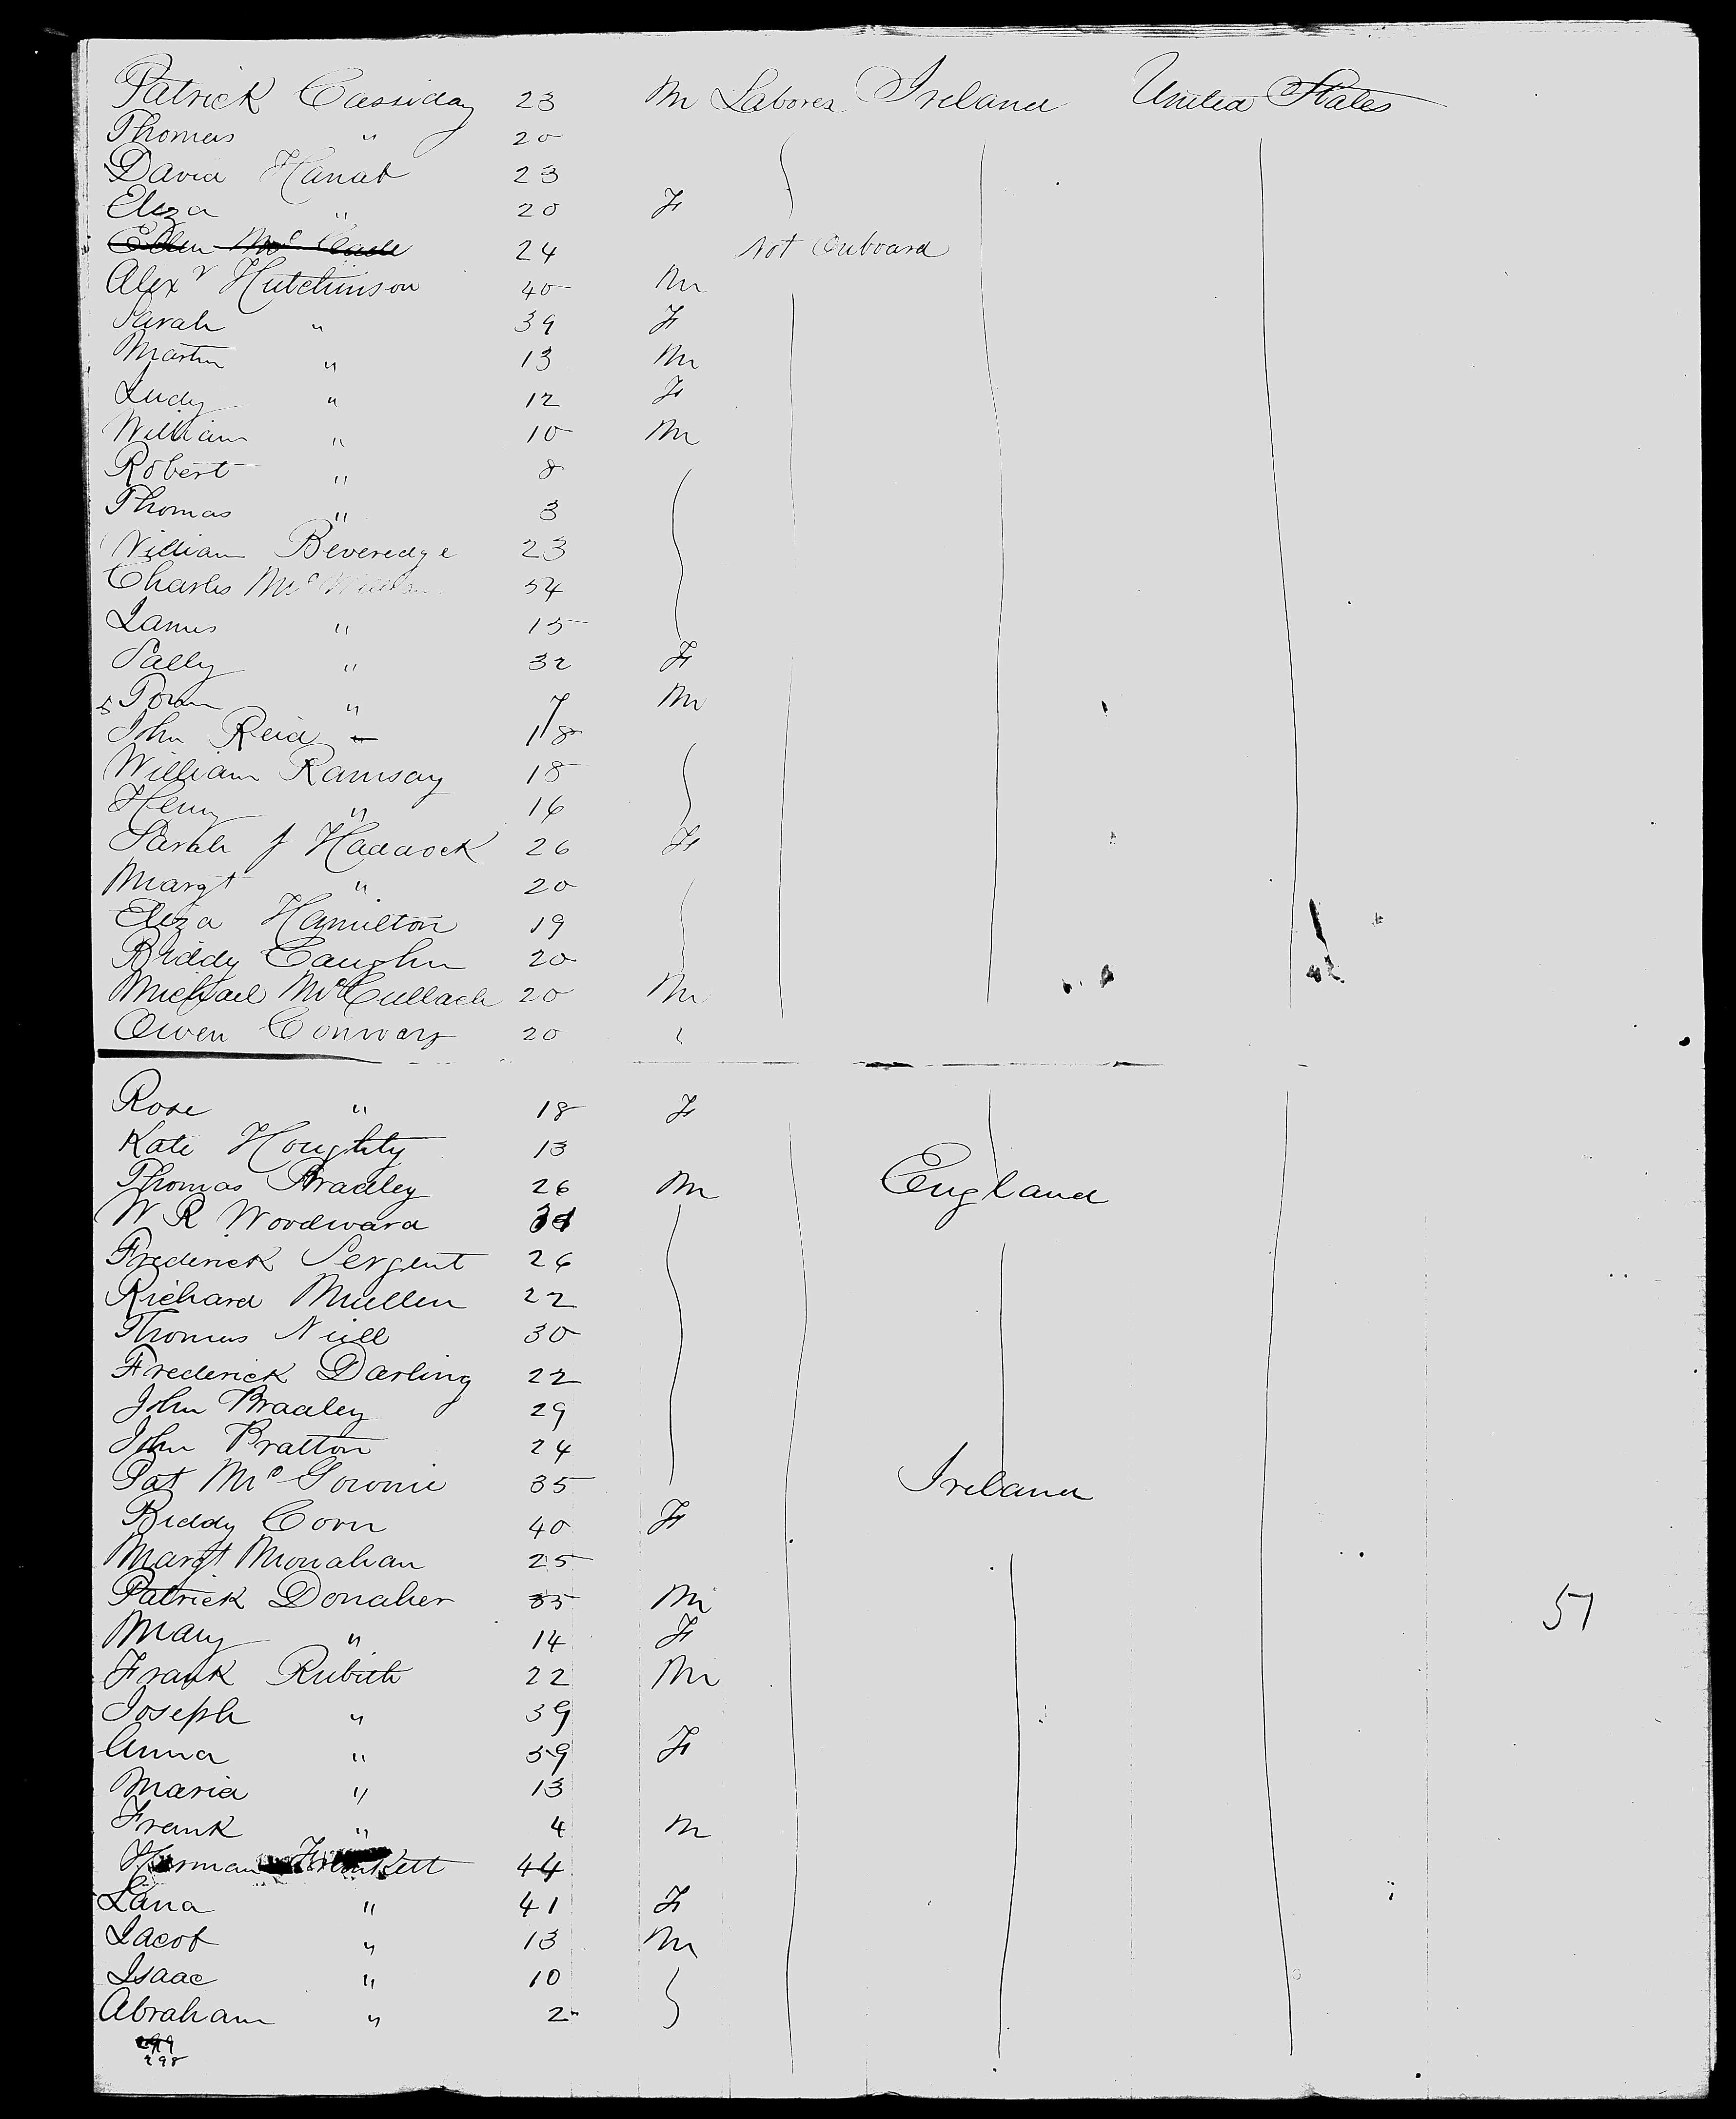 Patrick Cassiday 23 M Laborer Ireland United States
Thomas " 20
David Hanat 23
Eliza " 20 F
Ellen Mc Cade 24 Not Onboard
Alexr Hutchinson 40 M
Sarah " 39 F
Martin " 13 M
Judy " 12 F
William " 10 M
Robert " 8
Thomas " 3
William Beveredge 23
Charles Mc 54
James " 15
Sally " 32 F
Tom " 7 M
John Reid 18
William Ramsay 18
Henry " 16
Sarah J Haddock 26 F
Margt " 20
Eliza Hamilton 19
Briddy Caughn 20
Michael McCullach 20 M
Owen Conway 20
Rose " 18 F
Kate Houghty 13
Thomas Bradley 26 M England
W R Woodward
Frederick Sergent 26
Richard Mullen 22
Thomas Niell 30
Frederick Darling 22
John Bradley 29
John Bratton 24
Pat Mc Gownie 35 Ireland
Biddy Corn 40 F
Margt Monahan 25
Patrick Donaher 35 M 51
Mary " 14 F
Frank Rubith 22 M
Joseph " 39
Anna " 39 F
Maria " 13
Frank " 4 M
Herman 44
Lana " 41 F
Jacob " 13 M
Isaac " 10
Abraham " 2
299
298